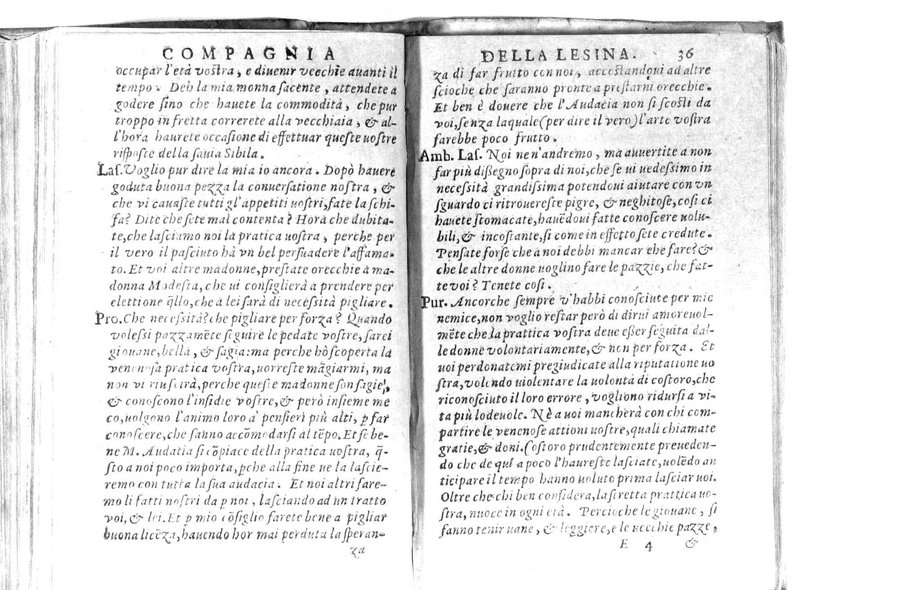 COMPAGNIA
occupar l'età vostra, e divenir vecchie auanti il
tempo. Deh la mia monna sacente, attendete a
godere sino che hauete la commodità, che pur
troppo in fretta correrete alla vecchiaia, & al-
l'hora haurete occasione di effettuar queste uostre
risposte della sauia Sibila.
Las. Voglio pur dire la mia io ancora. Dopò hauere
goduta buona pezza la conuersatione nostra, &
che vi cauaste tutti gl'appetiti uostri, fate la schi-
fa? Dite che sete mal contenta? Horà che dubita-
te, che lasciamo noi la pratica uostra, perche per
il vero il pasciuto hà vn bel persuadere l'affama-
to. Et voi altre madonne, prestate orecchie à ma-
donna Modesta, che ui consiglierà a prendere per
elettione q̃llo, che à lei sarà di necessità pigliare.
Pro. Che necessità? che pigliare per forza? Quando
volessi pazzamẽte seguire le pedate vostre, sarei
giouane, bella, & sagia: ma perche hò scoperta la
venenosa pratica vostra, uorreste mãgiarmi, ma
non vi riuscirà, perche queste madonne son sagie,
& conoscono l'insidie vostre, & però insieme me
co, uolgono l'animo loro à pensieri più alti, p far
conoscere, che sanno accõmodarsi al tẽpo. Et se be-
ne M. Audatia si cõpiace della pratica uostra, q̃-
sto a noi poco importa, pche alla fine ue la lascie-
remo con tutta la sua audacia. Et noi altri fare-
mo li fatti nostri da p noi, lasciando ad un tratto
voi, & lei. Et p mio cõsiglio farete bene a pigliar
buona licẽza, hauendo hor mai perduta la speran-
za
DELLA LESINA. 36
za di far frutto con noi, accostandoui ad altre
scioche che saranno pronte a prestarui orecchie.
Et ben è douere che l'Audacia non si scosti da
voi, senza laquale (per dire il vero) l'arte vostra
farebbe poco frutto.
Amb. Las. Noi ne n'andremo, ma auuertite a non
far più disegno sopra di noi, che se ui uedessimo in
necessità grandissima potendoui aiutare con vn
sguardo ci ritrouereste pigre, & neghitose, così ci
hauete stomacate, hauẽdoui fatte conoscere uolu-
bili, & incostante, si come in effetto sete credute.
Pensate forse che a noi debbi mancar che fare? &
che le altre donne uoglino fare le pazzie, che fat-
te voi? Tenete così.
Pur. Ancorche sempre v'habbi conosciute per mie
nemice, non voglio restar però di dirui amoreuol-
mẽte che la prattica vostra deue esser seguita dal-
le donne volontariamente, & non per forza. Et
uoi perdonatemi pregiudicate alla riputatione uo
stra, volendo uiolentare la uolontà di costoro, che
riconosciuto il loro errore, vogliono ridursi a vi-
ta più lodeuole. Nè a uoi mancherà con chi com-
partire le venenose attioni uostre, quali chiamate
gratie, & doni. Costoro prudentemente preueden-
do che de quì a poco l'haureste lasciate, uolẽdo an
ticipare il tempo hanno uoluto prima lasciar uoi.
Oltre che chi ben considera, la stretta prattica uo-
stra, nuoce in ogni età. Percioche le giouane, si
fanno tenir uane, & leggiere, e le uecchie pazze,
E 4 &